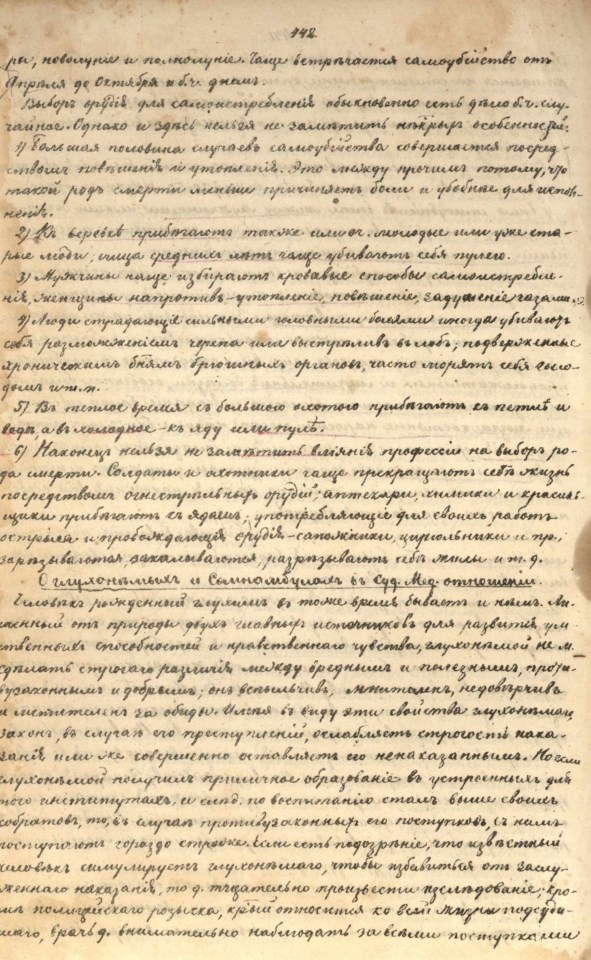 442
ры, новолуніе и полнолуніе. Чаще встрѣчается самоубійство отъ
Апрѣля до Октября и б.ч. днемъ.
Выборъ орудія для самоистребленія обыкновенно есть дѣло б.ч. слу-
чайное. Однако и здѣсь нельзя не замѣтить нѣкрыхъ особенностей:
1) Большая половина случаевъ самоубійства совершается посред-
ствомъ повѣшенія и утопленія. Это между прочимъ потому, что
такой родъ смерти меньше причиняетъ боли и удобнѣе для испол-
ненія.
2) Къ веревкѣ прибѣгаютъ также или оч. молодые или уже ста-
рые люди; лица среднихъ лѣтъ чаще убиваютъ себя пулею.
3) Мужчины чаще избираютъ кровавые способы самоистребле-
нія, женщины напротивъ – утопленіе, повѣшеніе, задушеніе газами.
4) Люди страдающіе сильными головными болями иногда убиваютъ
себя размозженіемъ черепа или выстрѣливъ въ лобъ; подверженные
хроническимъ бнямъ брюшныхъ органовъ, часто морятъ себя голо-
домъ и т.п.
5) Въ теплое время съ большою охотою прибѣгаютъ къ петлѣ и
водѣ, а въ холодное – къ яду или пулѣ.
6) Наконецъ нельзя не замѣтить вліянія профессіи на выборъ ро-
да смерти. Солдаты и охотники чаще прекращаютъ себѣ жизнь
посредствомъ огнестрѣльныхъ орудій; аптекари, химики и красиль-
щики прибѣгаютъ къ ядамъ; употребляющіе для своихъ работъ
острыя и прободающія орудія – сапожники, цирюльники и пр.,
зарѣзываются, закалываются, разрѣзываютъ себѣ жилы и т.д.
О глухонѣмыхъ и Сомнамбулахъ въ Суд. Мед. отношеніи.
Человѣкъ рожденный глухимъ въ тоже время бываетъ и нѣмъ. Ли-
шенный отъ природы двухъ главныхъ источниковъ для развитія ум-
ственныхъ способностей и нравственнаго чувства, глухонѣмой не м.
сдѣлать строгаго различія между вреднымъ и полезнымъ, проти-
вузаконнымъ и добрымъ; онъ вспыльчивъ, недовѣрчивъ
и мстителенъ за обиды. Имѣя въ виду эти свойства глухонѣмыхъ
законъ, въ случаѣ его преступленій, ослабляетъ строгость нака-
занія или же совершенно оставляетъ его ненаказаннымъ. Но если
глухонѣмой получилъ приличное образованіе въ устроенныхъ для
того институтахъ, и слѣд. по воспитанію сталъ выше своихъ
собратовъ, то, въ случаѣ противузаконныхъ его поступковъ, съ нимъ
поступаютъ гораздо строже. Если есть подозрѣніе, что извѣстный
человѣкъ симулируетъ глухонѣмаго, чтобы избавиться отъ заслу-
женнаго наказанія, то д. тщательно произвести изслѣдованіе; кро-
мѣ полицейскаго розыска, крый относится ко всей жизни подсуди-
маго, врачъ д. внимательно наблюдать за всѣми поступками